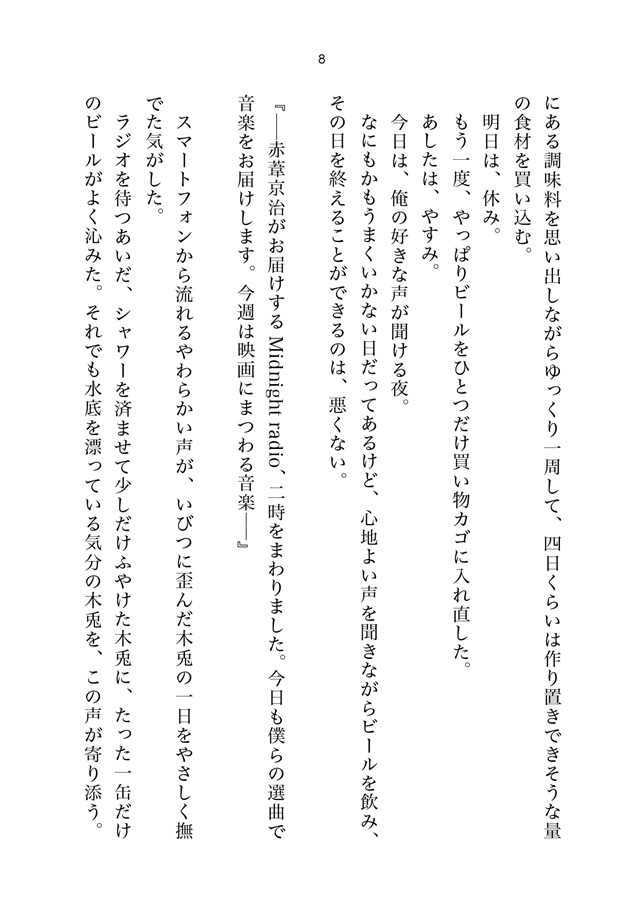 8
にある調味料を思い出しながらゆっくり一周して、四日くらいは作り置きできそうな量
の食材を買い込む。
明日は、休み。
もう一度、やっぱりビールをひとつだけ買い物カゴに入れ直した。
あしたは、やすみ。
今日は、俺の好きな声が聞ける夜。
なにもかもうまくいかない日だってあるけど、心地よい声を聞きながらビールを飲み、
その日を終えることができるのは、悪くない。
『――赤葦京治がお届けする Midnight radio、二時をまわりました。今日も僕らの選曲で
音楽をお届けします。今週は映画にまつわる音楽――』
スマートフォンから流れるやわらかい声が、いびつに歪んだ木兎の一日をやさしく撫
でた気がした。
ラジオを待つあいだ、シャワーを済ませて少しだけふやけた木兎に、たった一缶だけ
のビールがよく沁みた。それでも水底を漂っている気分の木兎を、この声が寄り添う。